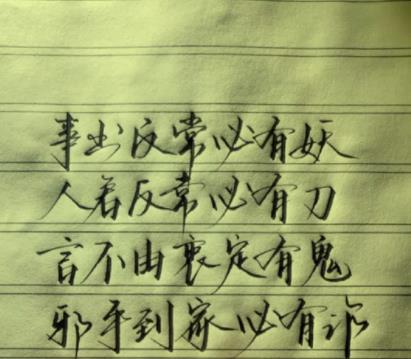 事出反常必有妖
人若反常必有刀
言不由衷定有鬼
邪乎到家必有诈